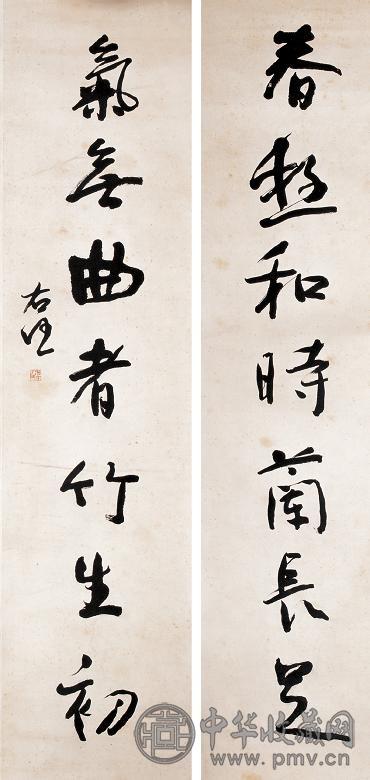 春和時蘭長足
氣無曲者竹生初
右任
中华收藏网
www.pmv.cn